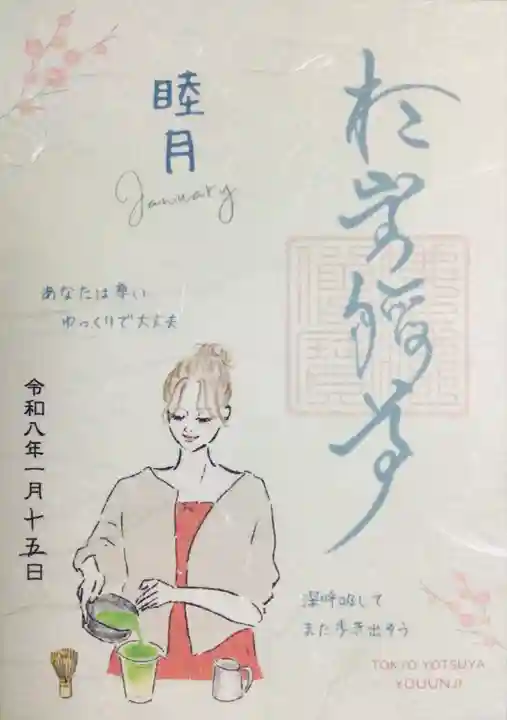 睦月
January
あなたは尊い
ゆっくりで大丈夫
令和八年一月十五日
深呼吸して
また歩き出そう
TOKYO YOTSUYA
YOUUNJI